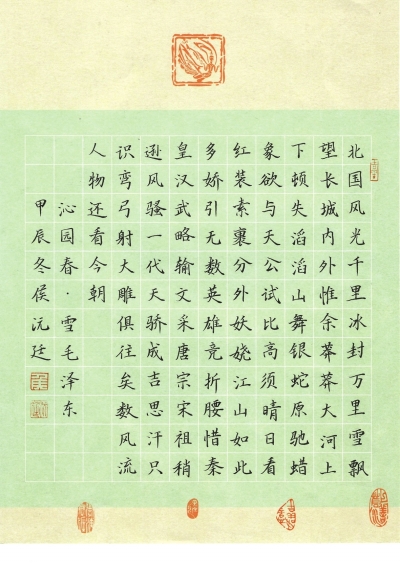 北国风光千里冰封万里雪飘
望长城内外惟余莽莽大河上
下顿失滔滔山舞银蛇原驰蜡
象欲与天公试比高须晴日看
红装素裹分外妖娆江山如此
多娇引无数英雄竞折腰惜秦
皇汉武略输文采唐宗宋祖稍
逊风骚一代天骄成吉思汗只
识弯弓射大雕俱往矣数风流
人物还看今朝
沁园春·雪毛泽东
甲辰冬侯沅廷